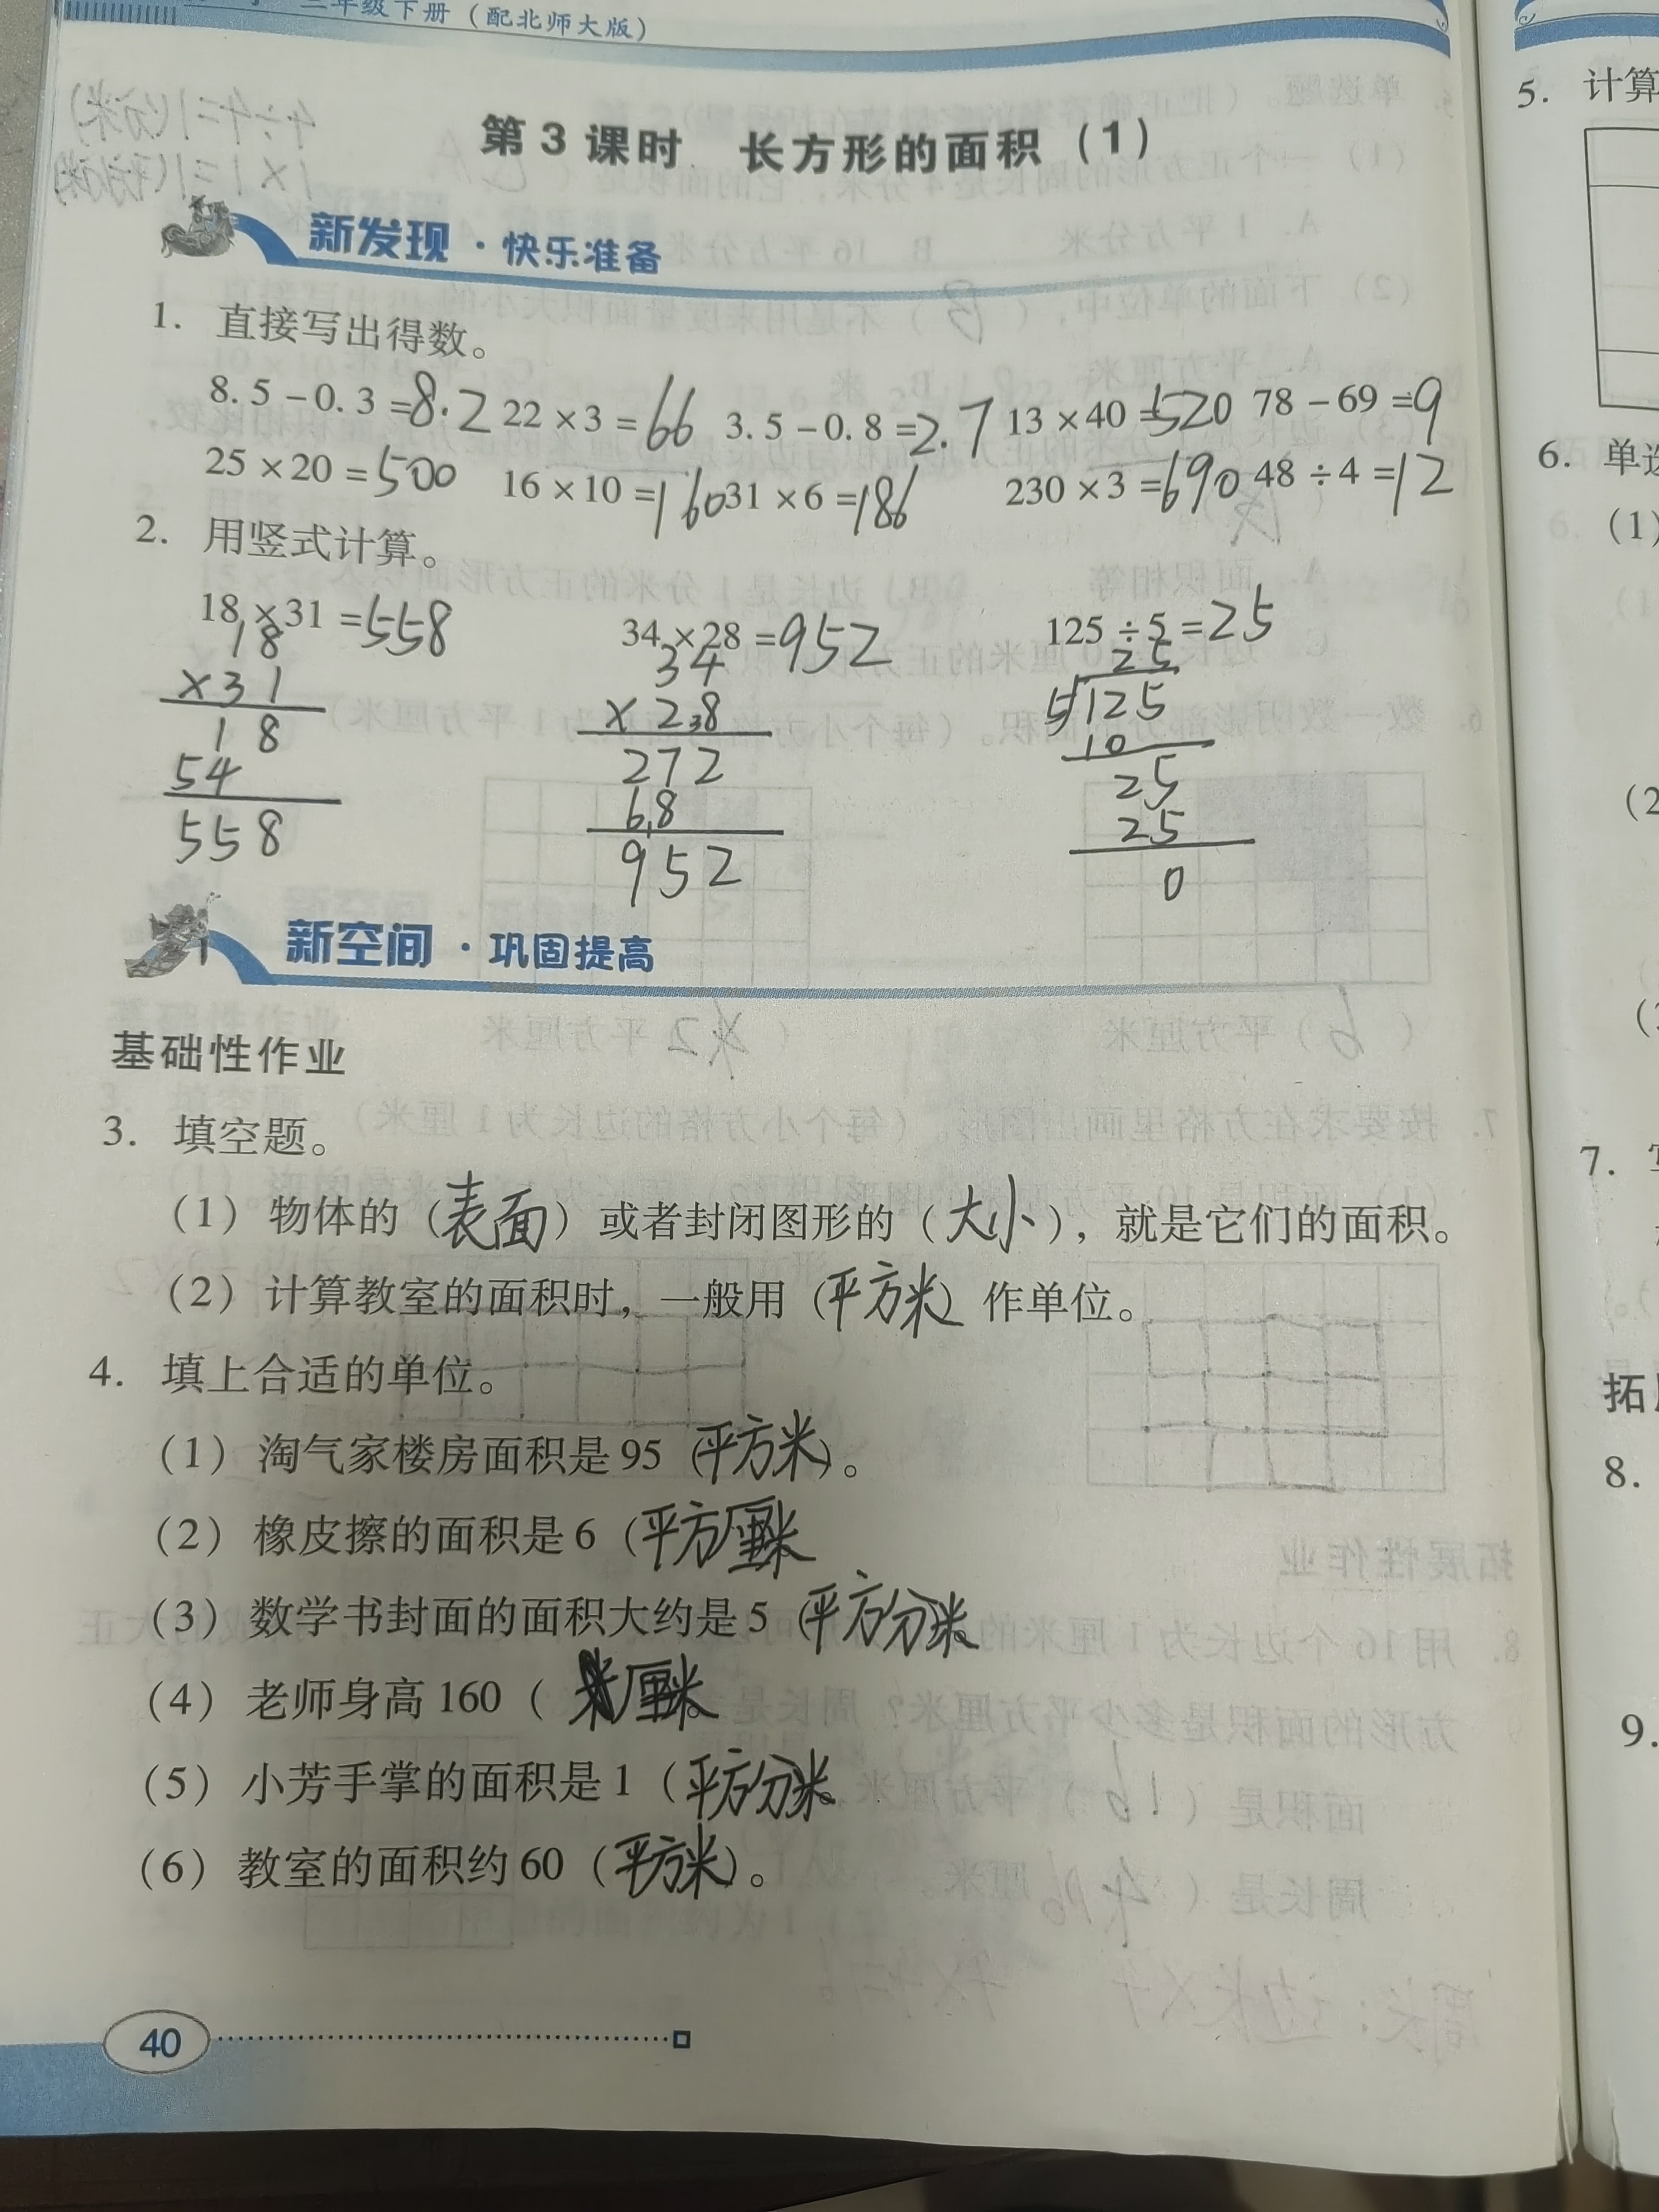 三年级下册（配北师大版）
第3课时 长方形的面积（1）
新发现·快乐准备
1. 直接写出得数。
8.5－0.3＝8.2 22×3＝66 3.5－0.8＝2.7 13×40＝520 78－69＝9
25×20＝500 16×10＝160 31×6＝186 230×3＝690 48÷4＝12
2. 用竖式计算。
18×31＝558 34×28＝952 125÷5＝25
18 34 25
×31 ×28 5 125
18 272 10
54 68 25
558 952 25
0
新空间·巩固提高
基础性作业
3. 填空题。
（1）物体的（表面）或者封闭图形的（大小），就是它们的面积。
（2）计算教室的面积时，一般用（平方米）作单位。
4. 填上合适的单位。
（1）淘气家楼房面积是95（平方米）。
（2）橡皮擦的面积是6（平方厘米
（3）数学书封面的面积大约是5（平方分米
（4）老师身高160（ 厘米
（5）小芳手掌的面积是1（平方分米
（6）教室的面积约60（平方米）。
40
5. 计算
6. 单选
（1）
（2
7.
拓
8.
9.